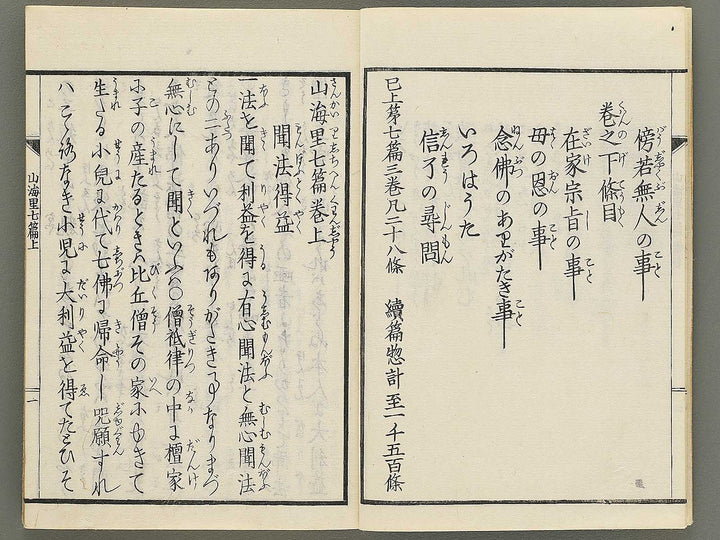 傍若無人の事
巻之下條目
在家宗旨の事
母の恩の事
念佛のありがたき事
いろはうた
信了の尋問
已上第七篇三巻凡二十八條 續篇惣計至一千五百條
山海里七篇巻上
聞法得益
一法を聞て利益を得に有心聞法と無心聞法
との二ありいづれもありがたき事なりまづ
無心にして聞といふハ〇僧祇律の中に檀家
に子の産たるときハ比丘僧その家にゆきて
生たる小兒に代て七佛に帰命し呪願すれ
ハこゝろなき小児に大利益を得てたとひそ
山海里七篇上
一